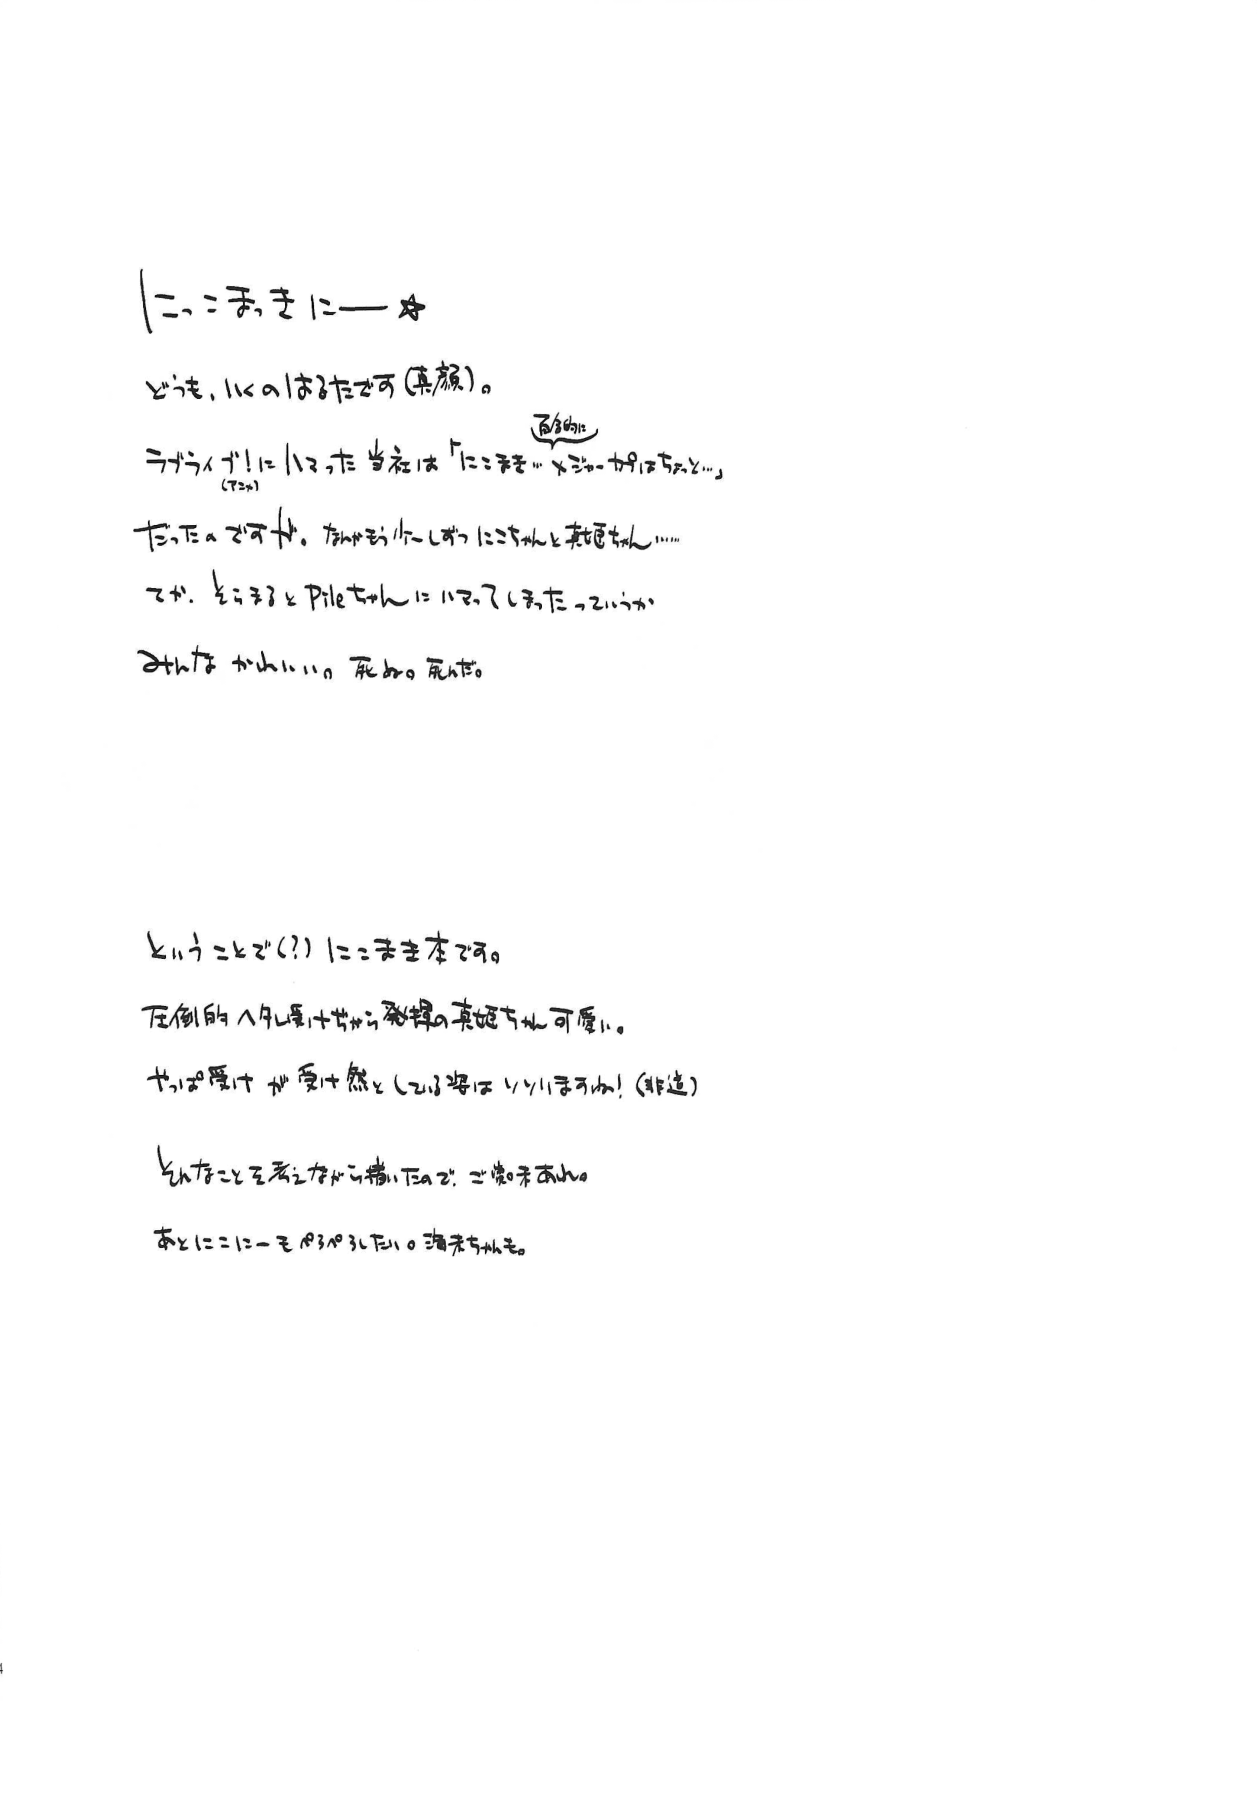 にっこまっきにー☆
どうも、いくのはるたです(真顔)。
百合的に
ラブライブ!にハマった当社は「にこまき…メジャーカプはちょっと…」
(アニメ)
だったのですが、なんかもう少ーしずつにこちゃんと真姫ちゃん……
てか、そらまるとPileちゃんにハマってしまったっていうか
みんなかわいい。死ぬ。死んだ。
ということで(?)にこまき本です。
圧倒的ヘタレ受けぢから発揮の真姫ちゃん可愛い。
やっぱ受けが受け然としている姿はいいいますね!(非道)
そんなことを考えながら描いたので、ご賞味あれ。
あとにこにーもぺろぺろしたい。海未ちゃんも。